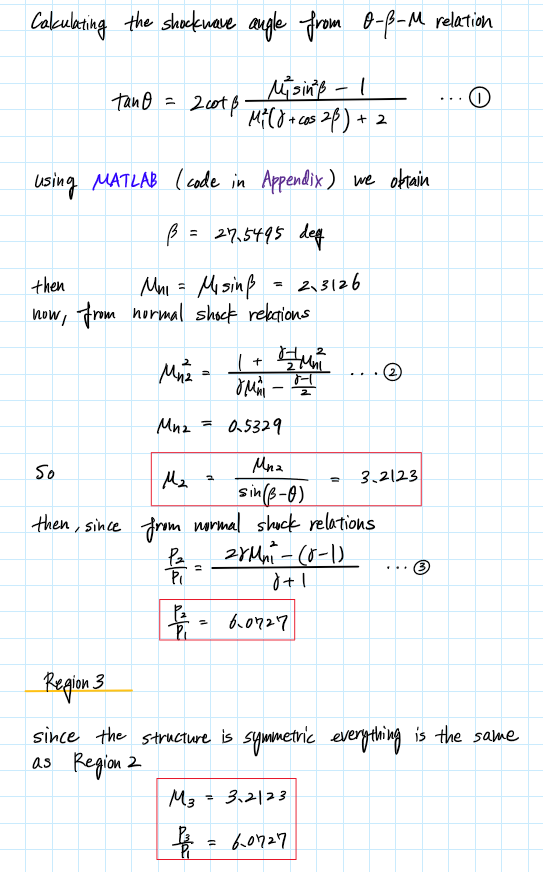 Calculating the shockwave angle from θ-β-M relation
tanθ = 2cotβ (M₁²sin²β - 1)/(M₁²(γ + cos 2β) + 2) ... ①
using MATLAB (code in Appendix) we obtain
β = 27.5495 deg
then Mn1 = M₁sinβ = 2.3126
now, from normal shock relations
Mn2² = (1 + (γ-1)/2 Mn1²)/(γMn1² - (γ-1)/2) ... ②
Mn2 = 0.5329
So M₂ = Mn2/sin(β-θ) = 3.2123
then, since from normal shock relations
P₂/P₁ = (2γMn1² - (γ-1))/(γ+1) ... ③
P₂/P₁ = 6.0727
Region 3
since the structure is symmetric everything is the same
as Region 2
M₃ = 3.2123
P₃/P₁ = 6.0727